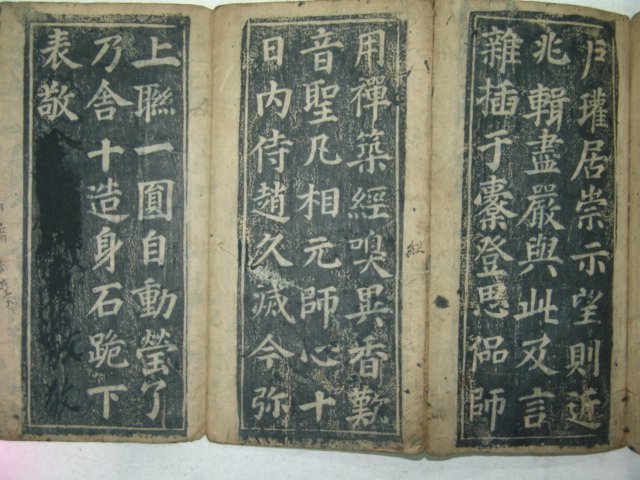 戶瓘居崇示望則近
兆輯盡嚴與此及言
雜插于橐登恩偈師
用禪築經嗅異香歎
音聖凡相元師心十
日內侍趙久滅今弥
上聯一圓自動瑩了
乃舍十造身石跪下
表敬
經